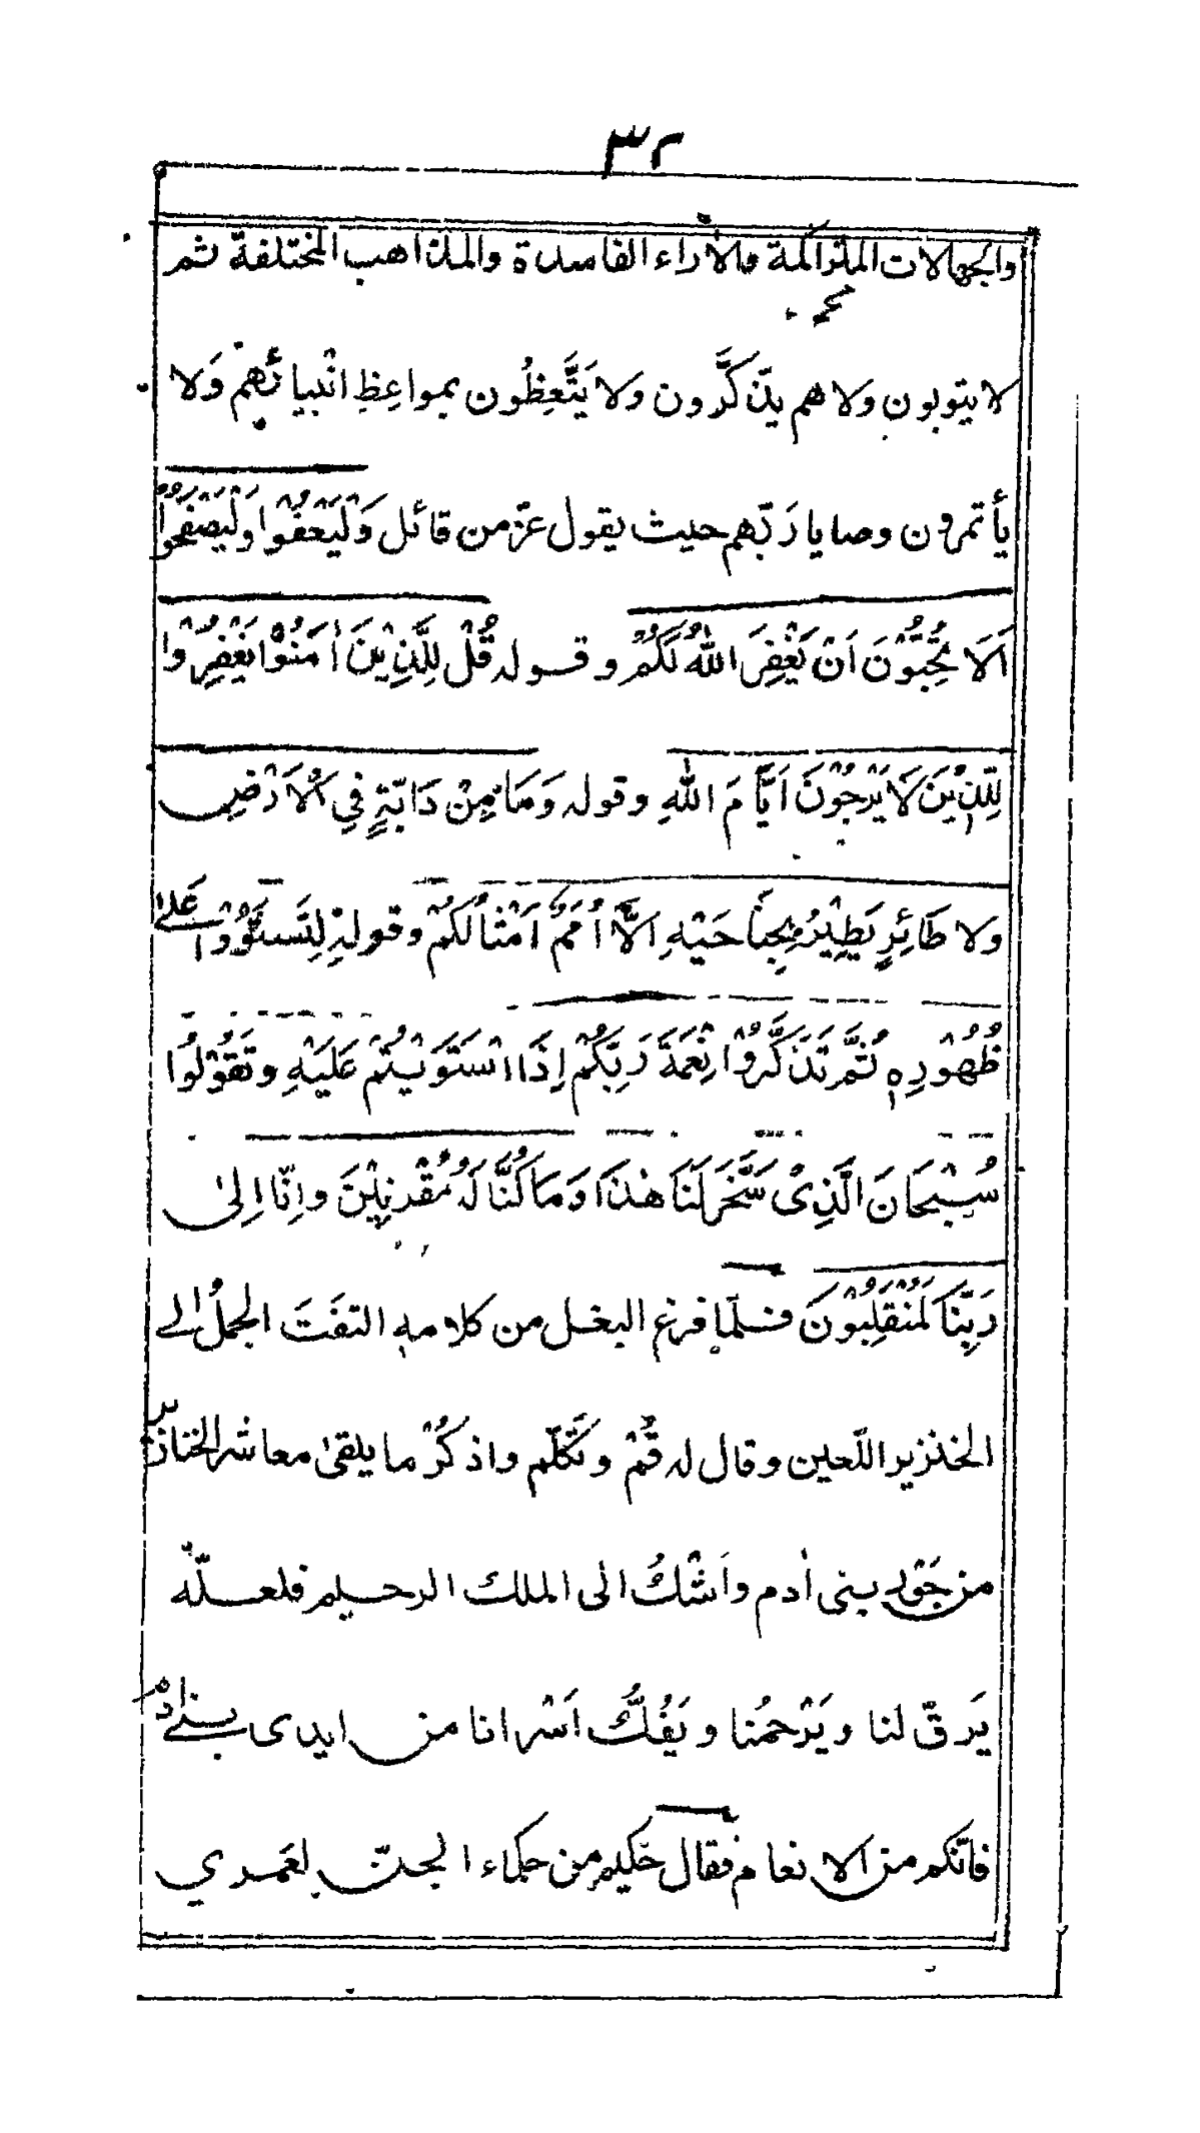 ٣٢
والجهالات المتراكمة والآراء الفاسدة والمذاهب المختلفة ثم
لا يتوبون ولا هم يذّكَّرون ولا يَتَّعِظُون بمواعِظِ انْبيائهِمْ وَلا
يأتمرون وصايا رَبّهم حيث يقول عزّ من قائل وَلْيَعْفُوْا وَلْيَصْفَحُوْا
اَلَا تُحِبُّوْنَ اَنْ يَغْفِرَ اللّٰهُ لَكُمْ وقوله قُلْ لِلَّذِيْنَ اٰمَنُوْا يَغْفِرُوْا
لِلَّذِيْنَ لَا يَرْجُوْنَ اَيَّامَ اللّٰهِ وقوله وَمَا مِنْ دَابَّةٍ فِي الْاَرْضِ
ولا طَائِرٍ يَطِيْرُ بِجَنَاحَيْهِ اِلَّا اُمَمٌ اَمْثَالُكُمْ وقولهٖ لِتَسْتَوُوْا عَلٰى
ظُهُوْرِهٖ ثُمَّ تَذْكُرُوْا نِعْمَةَ رَبِّكُمْ اِذَا اسْتَوَيْتُمْ عَلَيْهِ وتَقُوْلُوْا
سُبْحَانَ الَّذِىْ سَخَّرَ لَنَا هٰذَا وَمَا كُنَّا لَهٗ مُقْرِنِيْنَ واِنّا اِلىٰ
رَبِّنَا لَمُنْقَلِبُوْنَ فلمّا فرغ البغل من كلامهٖ التفَتَ الجملُ الٰى
الخنزير اللّعين وقال له قُمْ وتَكلّم واذكُرْ ما يلقىٰ معاشر الخنازير
من جَوْرِ بنى اٰدم واَشْكُ الى الملك الرحيم فلعلّهٗ
يَرقّ لنا ويَرْحمُنا ويَفُكُّ اَسْرانا من ايدى بنى اٰدم
فانّكم من الانعام فقال حكيم من حكماء الجنّ لعَمْري